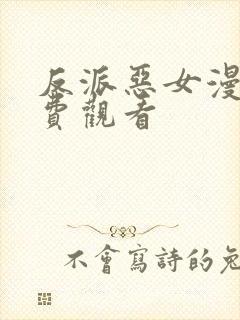 反派惡女漫
費觀看
不會寫詩的兔